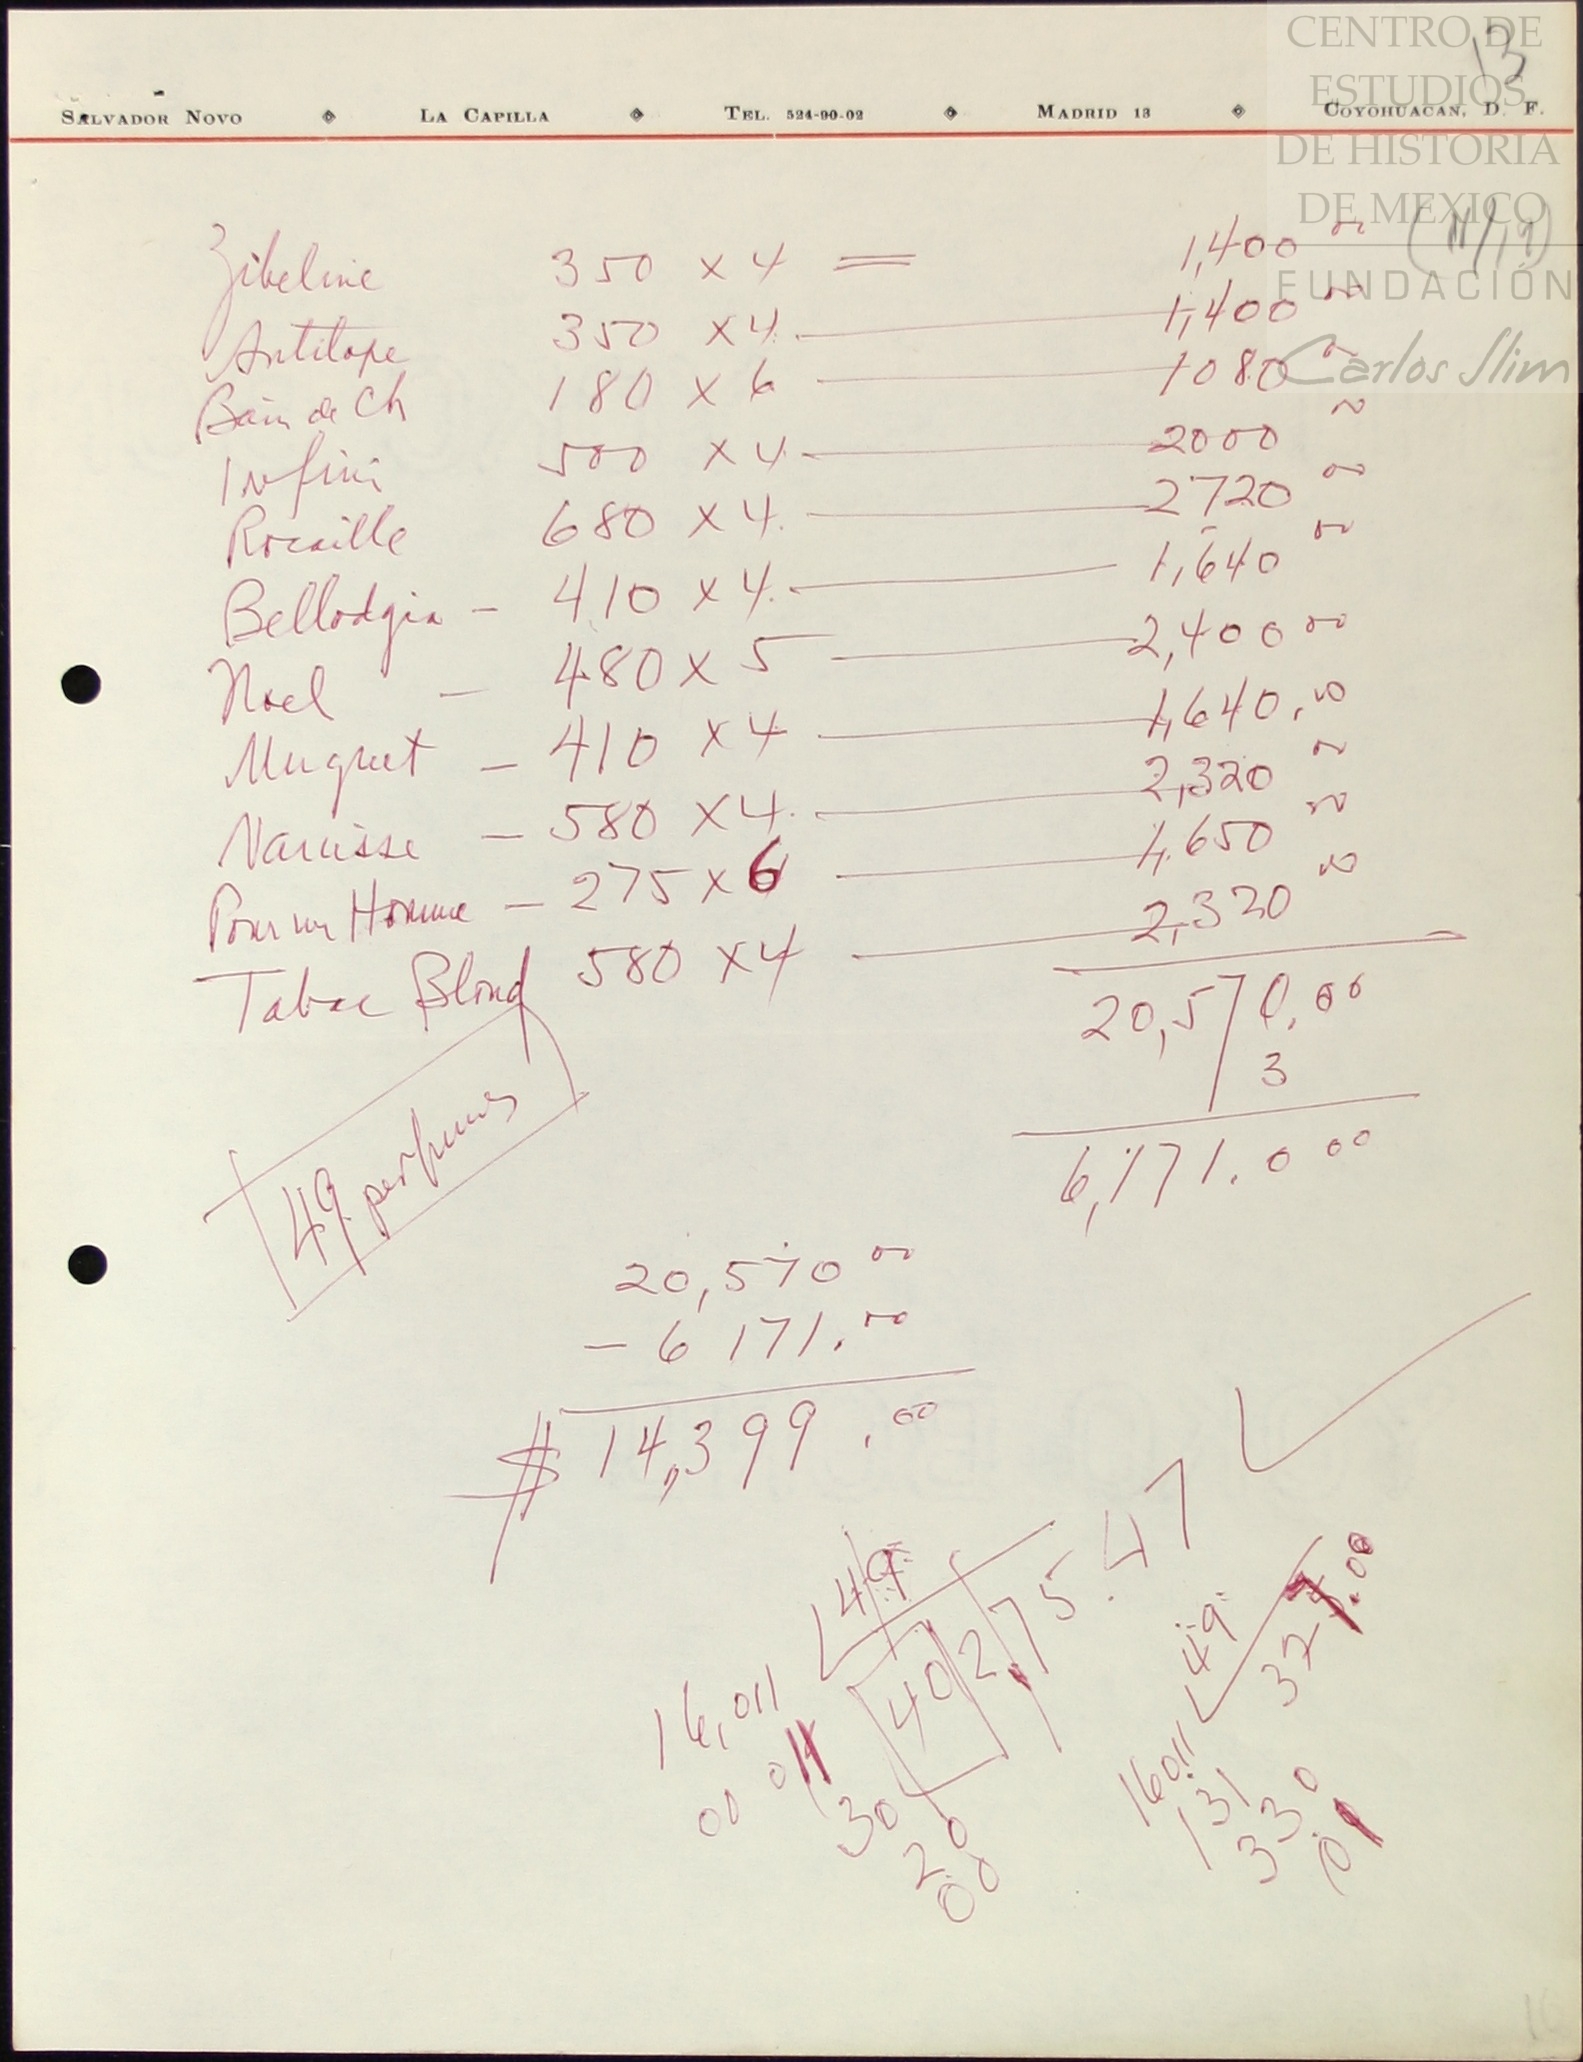 CENTRO DE
ESTUDIOS
DE HISTORIA
DE MEXICO
FUNDACIÓN
Carlos Slim
13
SALVADOR NOVO ◈ LA CAPILLA ◈ TEL. 524-90-02 ◈ MADRID 13 ◈ COYOHUACAN, D. F.
Zibeline 350 x 4 = 1,400 00
Antilope 350 x 4. — 1,400 00
Bain de Ch 180 x 6 — 1080 00
Infini 500 x 4. — 2000 00
Rocaille 680 x 4. — 2720 00
Bellodgia — 410 x 4. — 1,640 00
Noel — 480 x 5 — 2,400 00
Muguet — 410 x 4 — 1,640.00
Narcisse — 580 x 4. — 2,320 00
Pour un Homme — 275 x 6 — 1,650 00
Tabac Blond 580 x 4 — 2,320 00
20,570.00
3
6,171.0 00
49 perfumes
20,570 00
- 6 171.00
$ 14,399.00
49
40 2,75.47
16,011
00 011
30
20
00
49
327.00
16011
131
330